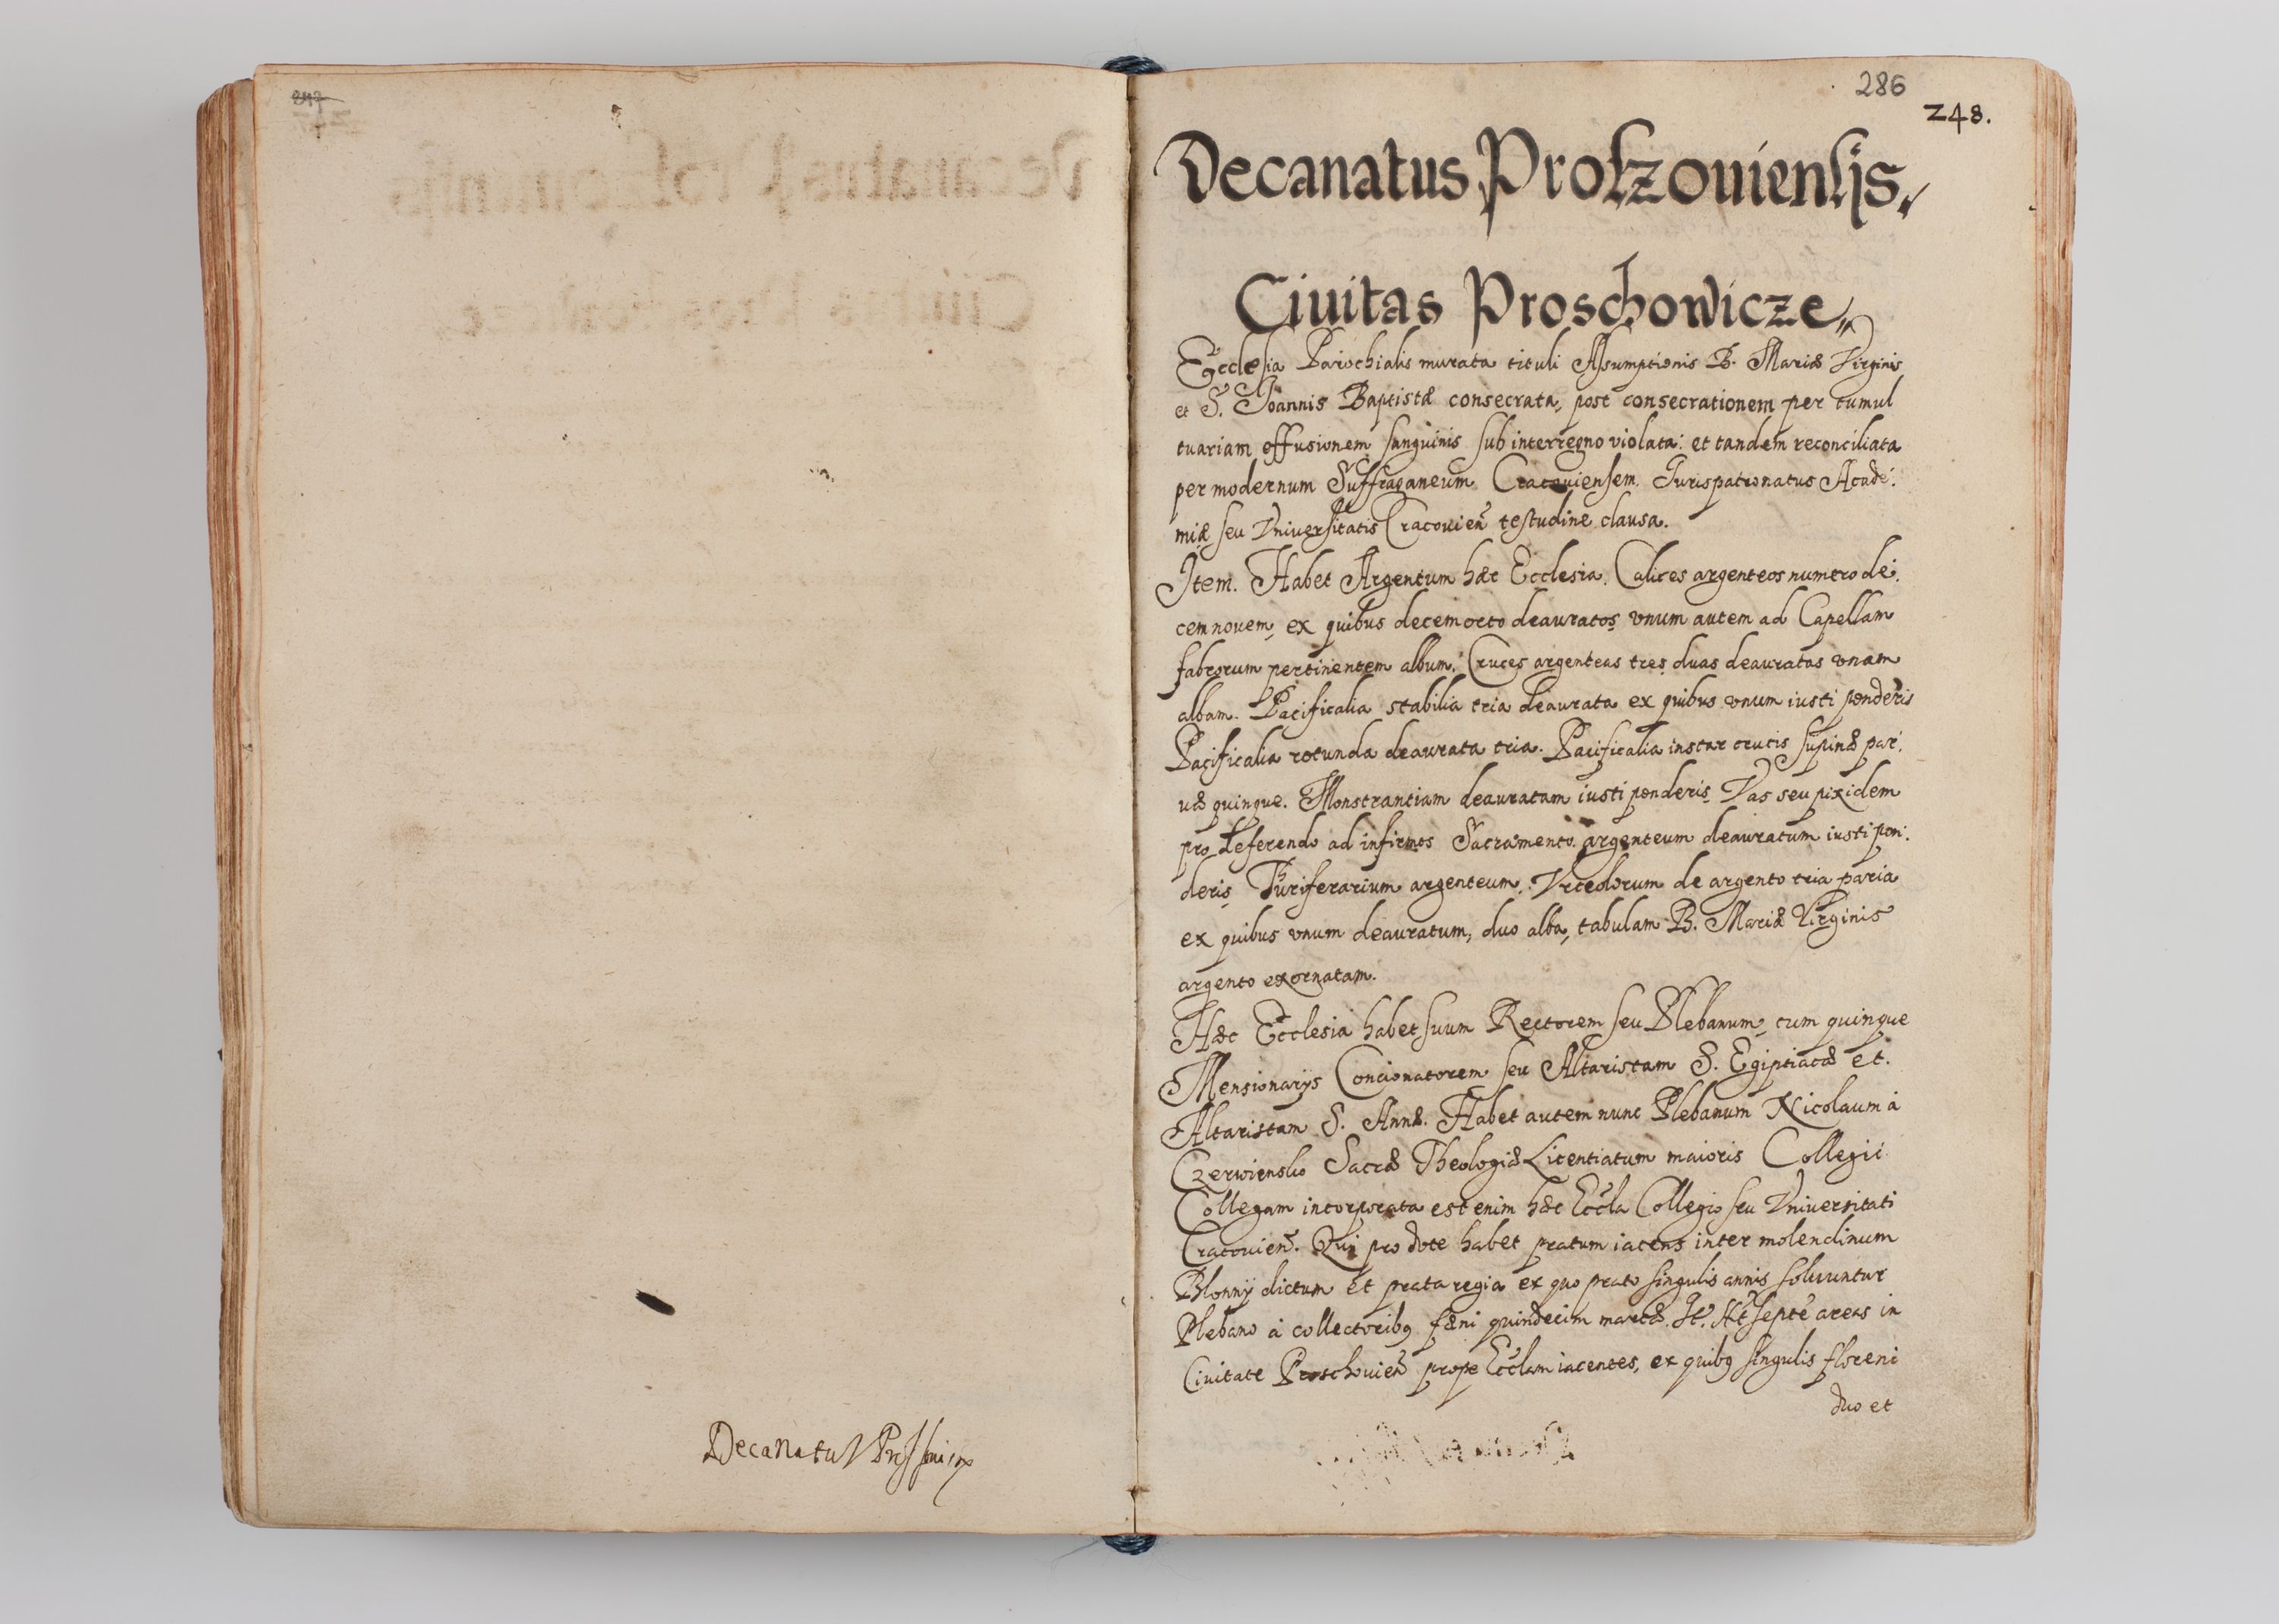 247
Decanatus
286
248.
Decanatus Proſzouienſis.
Ciuitas Proschowicze
Ecclesia Parochialis murata tituli Aſsumptionis B. Mariæ Virginis
et S. Joannis Baptistæ consecrata, post consecrationem per tumul
tuariam effusionem ſanguinis ſub interregno violata: et tandem reconciliata
per modernum Suffraganeum Cracouienſem. Jurispatronatus Acade:
miæ ſeu Vniuerſitatis Cracouien̄ teſtudine clausa.
Item. Habet Argentum hæc Ecclesia. Calices argenteos numero de:
cem nouem, ex quibus decem octo deauratos, vnum autem ad Capellam
fabrorum pertinentem album. Cruces argenteas tres, duas deauratas vnam
albam. Pacificalia stabilia tria deaurata ex quibus vnum iusti ponderis
Pacificalia rotunda deaurata tria. Pacificalia instar crucis ſupinæ par:
uæ quinque. Monstrantiam deauratam iusti ponderis. Vas seu pixidem
pro deferendo ad infirmos Sacramento argenteum deauratum iusti pon:
deris. Turiferarium argenteum. Vrceolorum de argento tria paria
ex quibus vnum deauratum, duo alba, tabulam B. Mariæ Virginis
argento exornatam.
Hæc Ecclesia habet ſuum Rectorem ſeu Plebanum, cum quinque
Mensionarijs Concionatorem ſeu Altaristam S. Egiptiacæ et.
Altaristam S. Annæ. Habet autem nunc Plebanum Nicolaum à
Czerwiensko Sacræ Theologiæ Licentiatum maioris Collegii
Collegam incorporata est enim hæc Eccla Collegio ſeu Vniuersitati
Cracouien̄. Qui pro dote habet pratum iacens inter molendinum
Blonny dictum et prata regia ex quo prato ſingulis annis ſoluuntur
Plebano à collectoribꝯ fæni quindecim marcæ. It. Ht ſepte areas in
Ciuitate Proschouien̄ prope Ecclam iacentes, ex quibꝯ ſingulis floreni
duo et